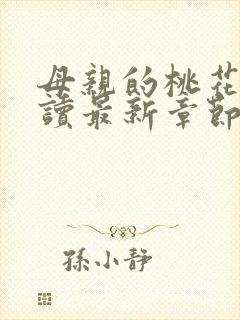 母親的桃花
讀最新章節
孫小靜